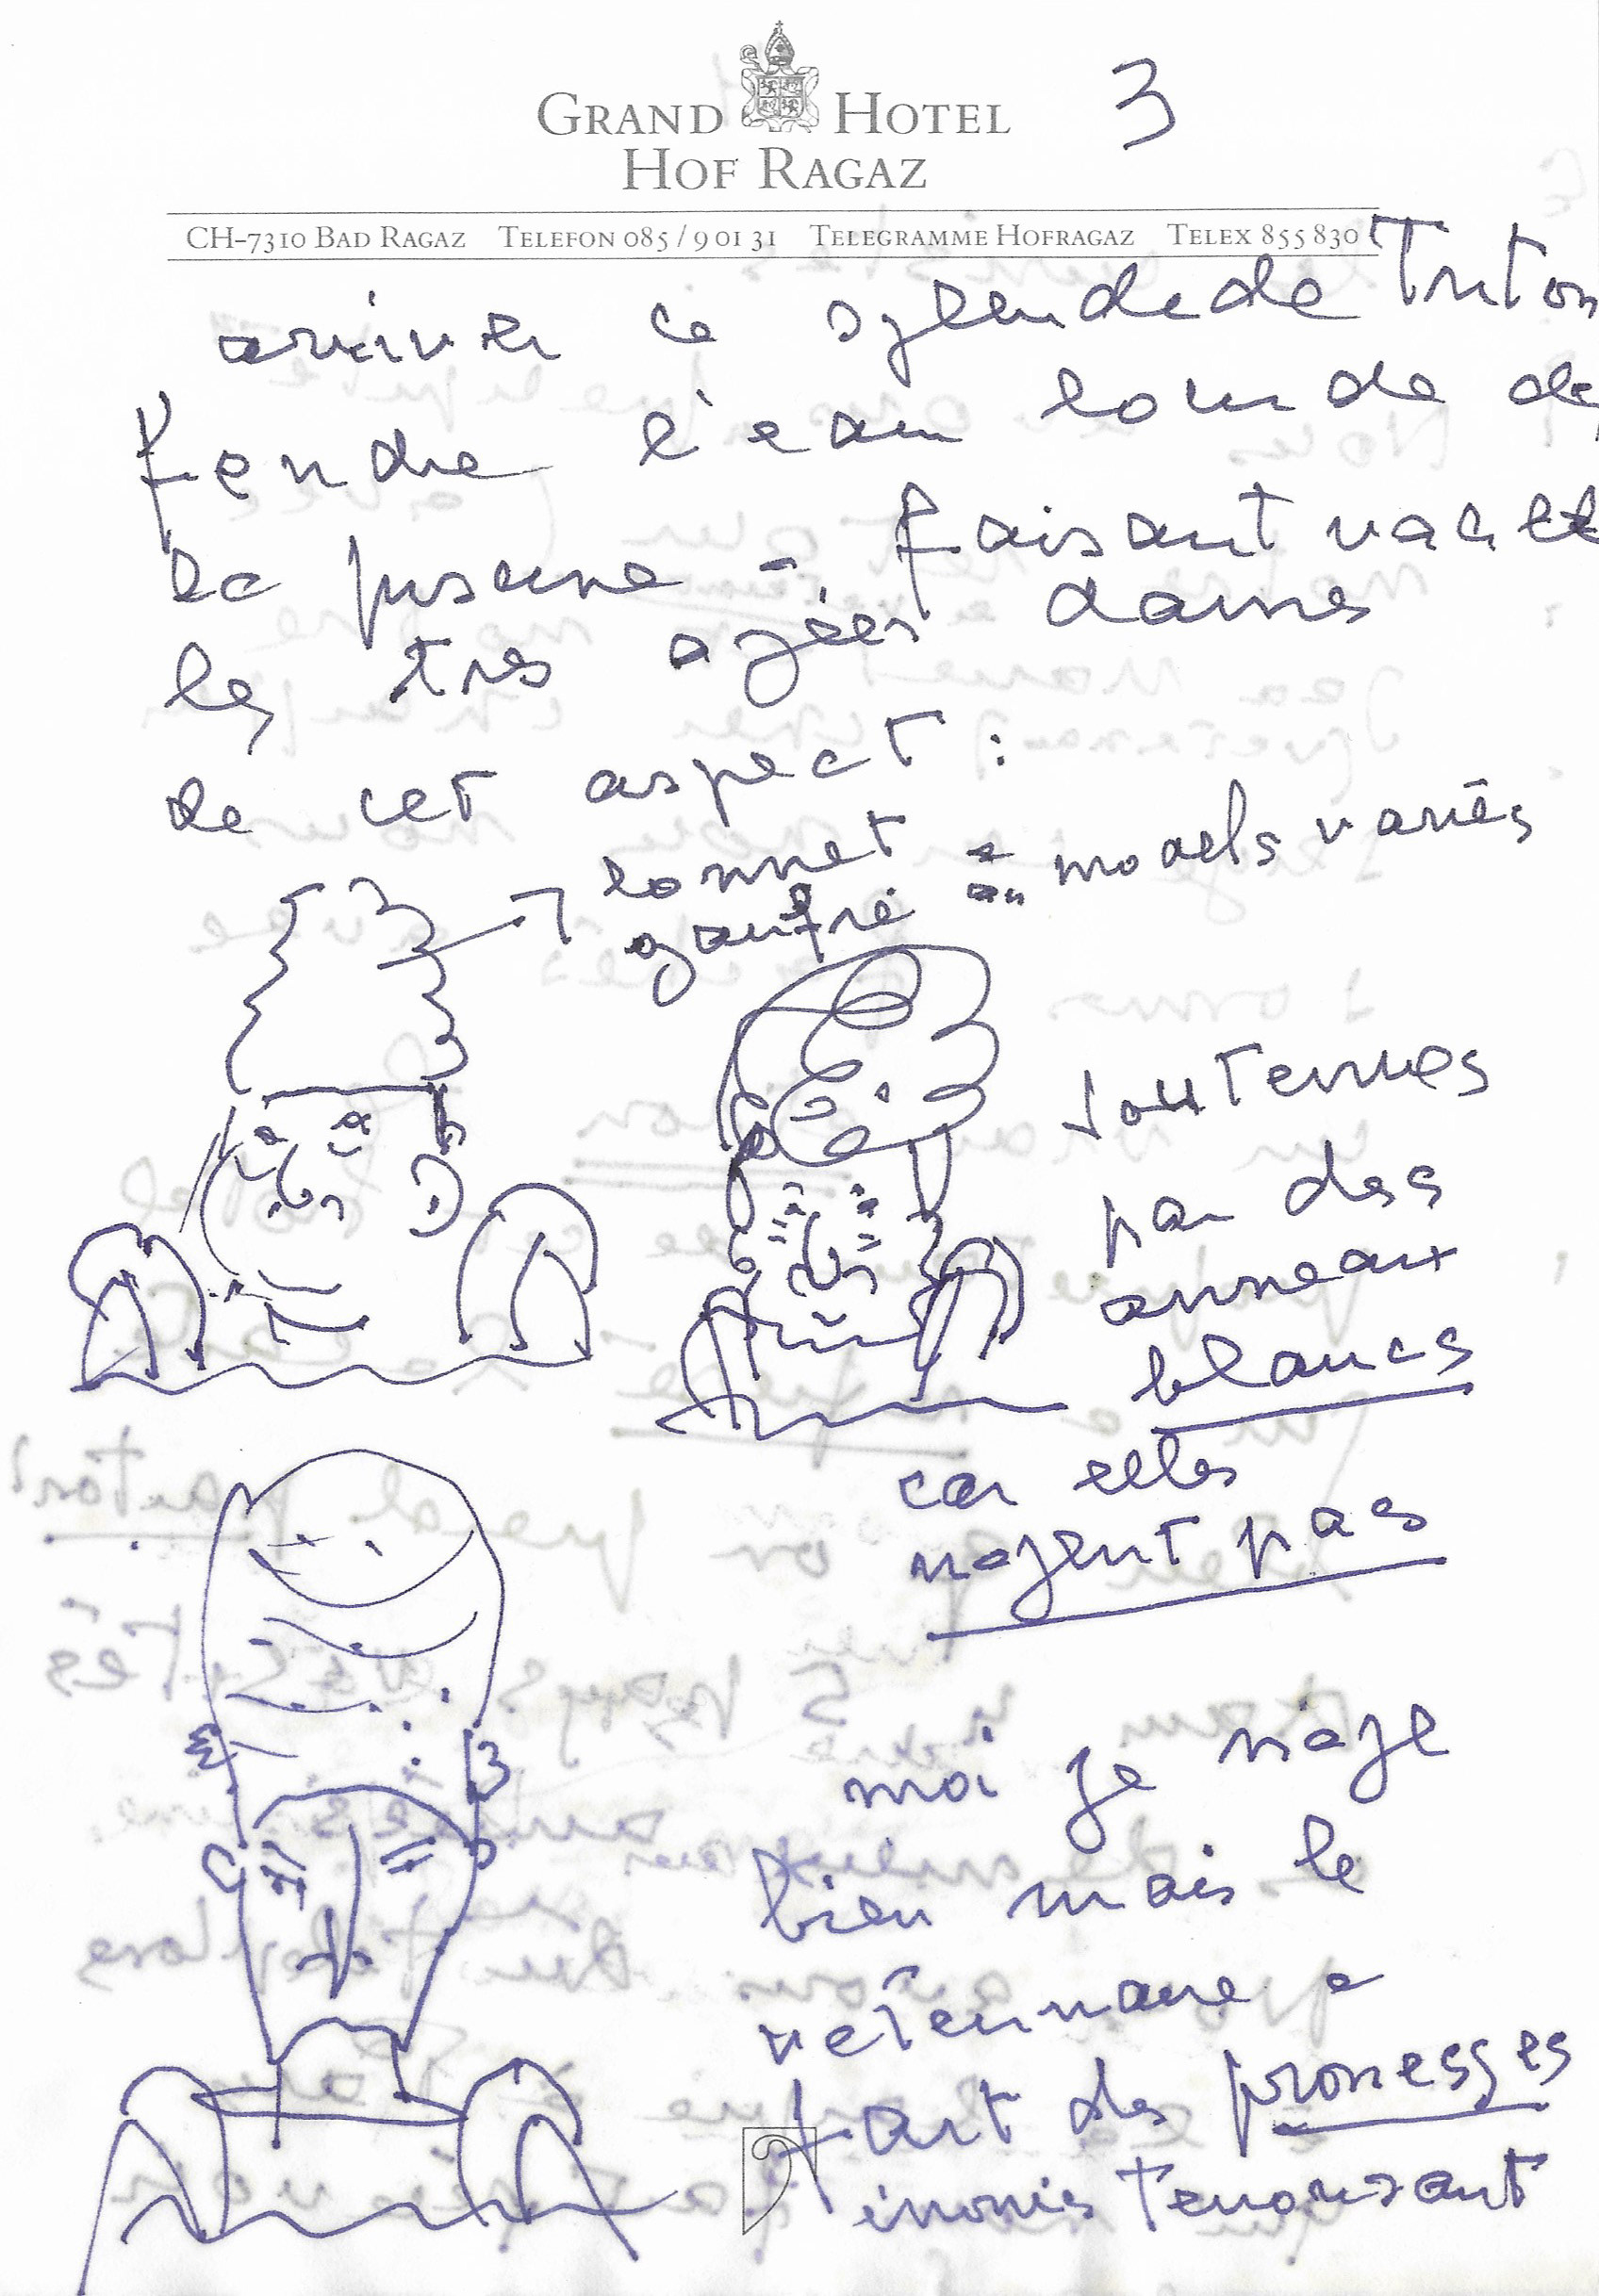 GRAND HOTEL
HOF RAGAZ
3
CH-7310 BAD RAGAZ TELEFON 085 / 9 01 31 TELEGRAMME HOFRAGAZ TELEX 855 830
arriver ce splendide Triton
fendre l'eau lourde de
la piscine - faisant
les très agées dames
de cet aspect :
bonnet
gaufré models variés
soutenues
par des
anneaux
blancs
car elles
nagent pas
moi je nage
bien mais le
veterinaire a
fait des
terrorisant